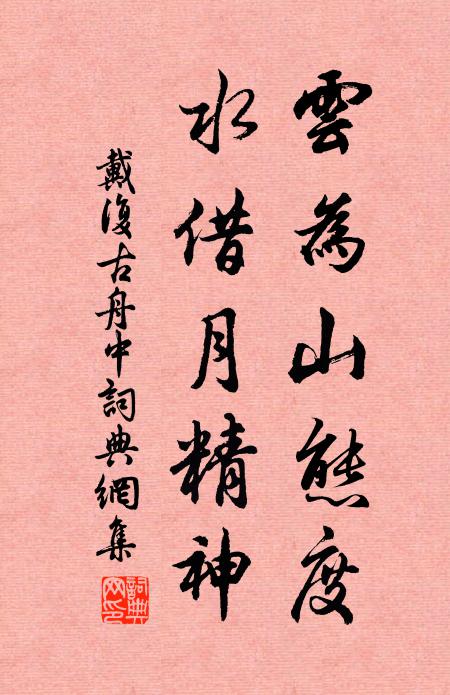 雲為山態度
水借月精神
戴復古舟中詞典網集
詞典網印